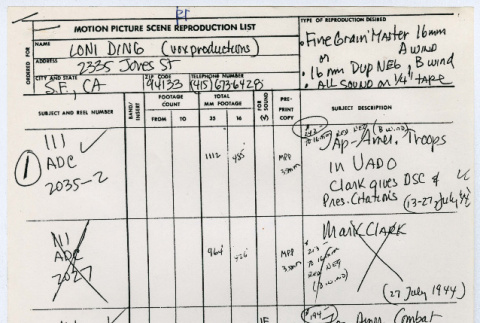 MOTION PICTURE SCENE REPRODUCTION LIST
TYPE OF REPRODUCTION DESIRED
ORDERED FOR
NAME
LONI DING (vox productions)
ADDRESS
2335 Jones St
CITY AND STATE
S.F., CA
ZIP CODE
94133
TELEPHONE NUMBER
(415) 673-6428
• Fine Grain Master 16mm
A wind
or
• 16mm Dup NEG, B wind
• All sound on 1/4" tape
SUBJECT AND REEL NUMBER
BAND/
INSERT
FOOTAGE
COUNT
FROM
TO
TOTAL
MM FOOTAGE
35
16
FOR
SOUND
(✓)
PRE-
PRINT
COPY
SUBJECT DESCRIPTION
1
111
ADC
2035-2
1112
445
MPP
35mm
to 16mm
(B wind)
Jap-Amer. Troops
in UADO
Clark gives DSC &
Pres. Citations
(13-27 July 44)
111
ADC
2027
964
MPP
35mm
213
to 16mm
(B wind)
Mark Clark
(27 July 1944)
194
Jap Amer Combat